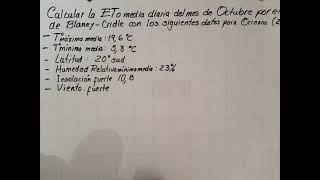 Calcular la ETo media diaria del mes de Octubre por e
de Blaney-Cridle con los siguientes datos para Orinoca (2
- Tº máxima media: 19,6 ºC
- Tº mínima media: 5,8 ºC
- Latitud: 20º sud
- Humedad Relativa mínima media: 23%
- Insolación fuerte 10,8
- Viento: fuerte